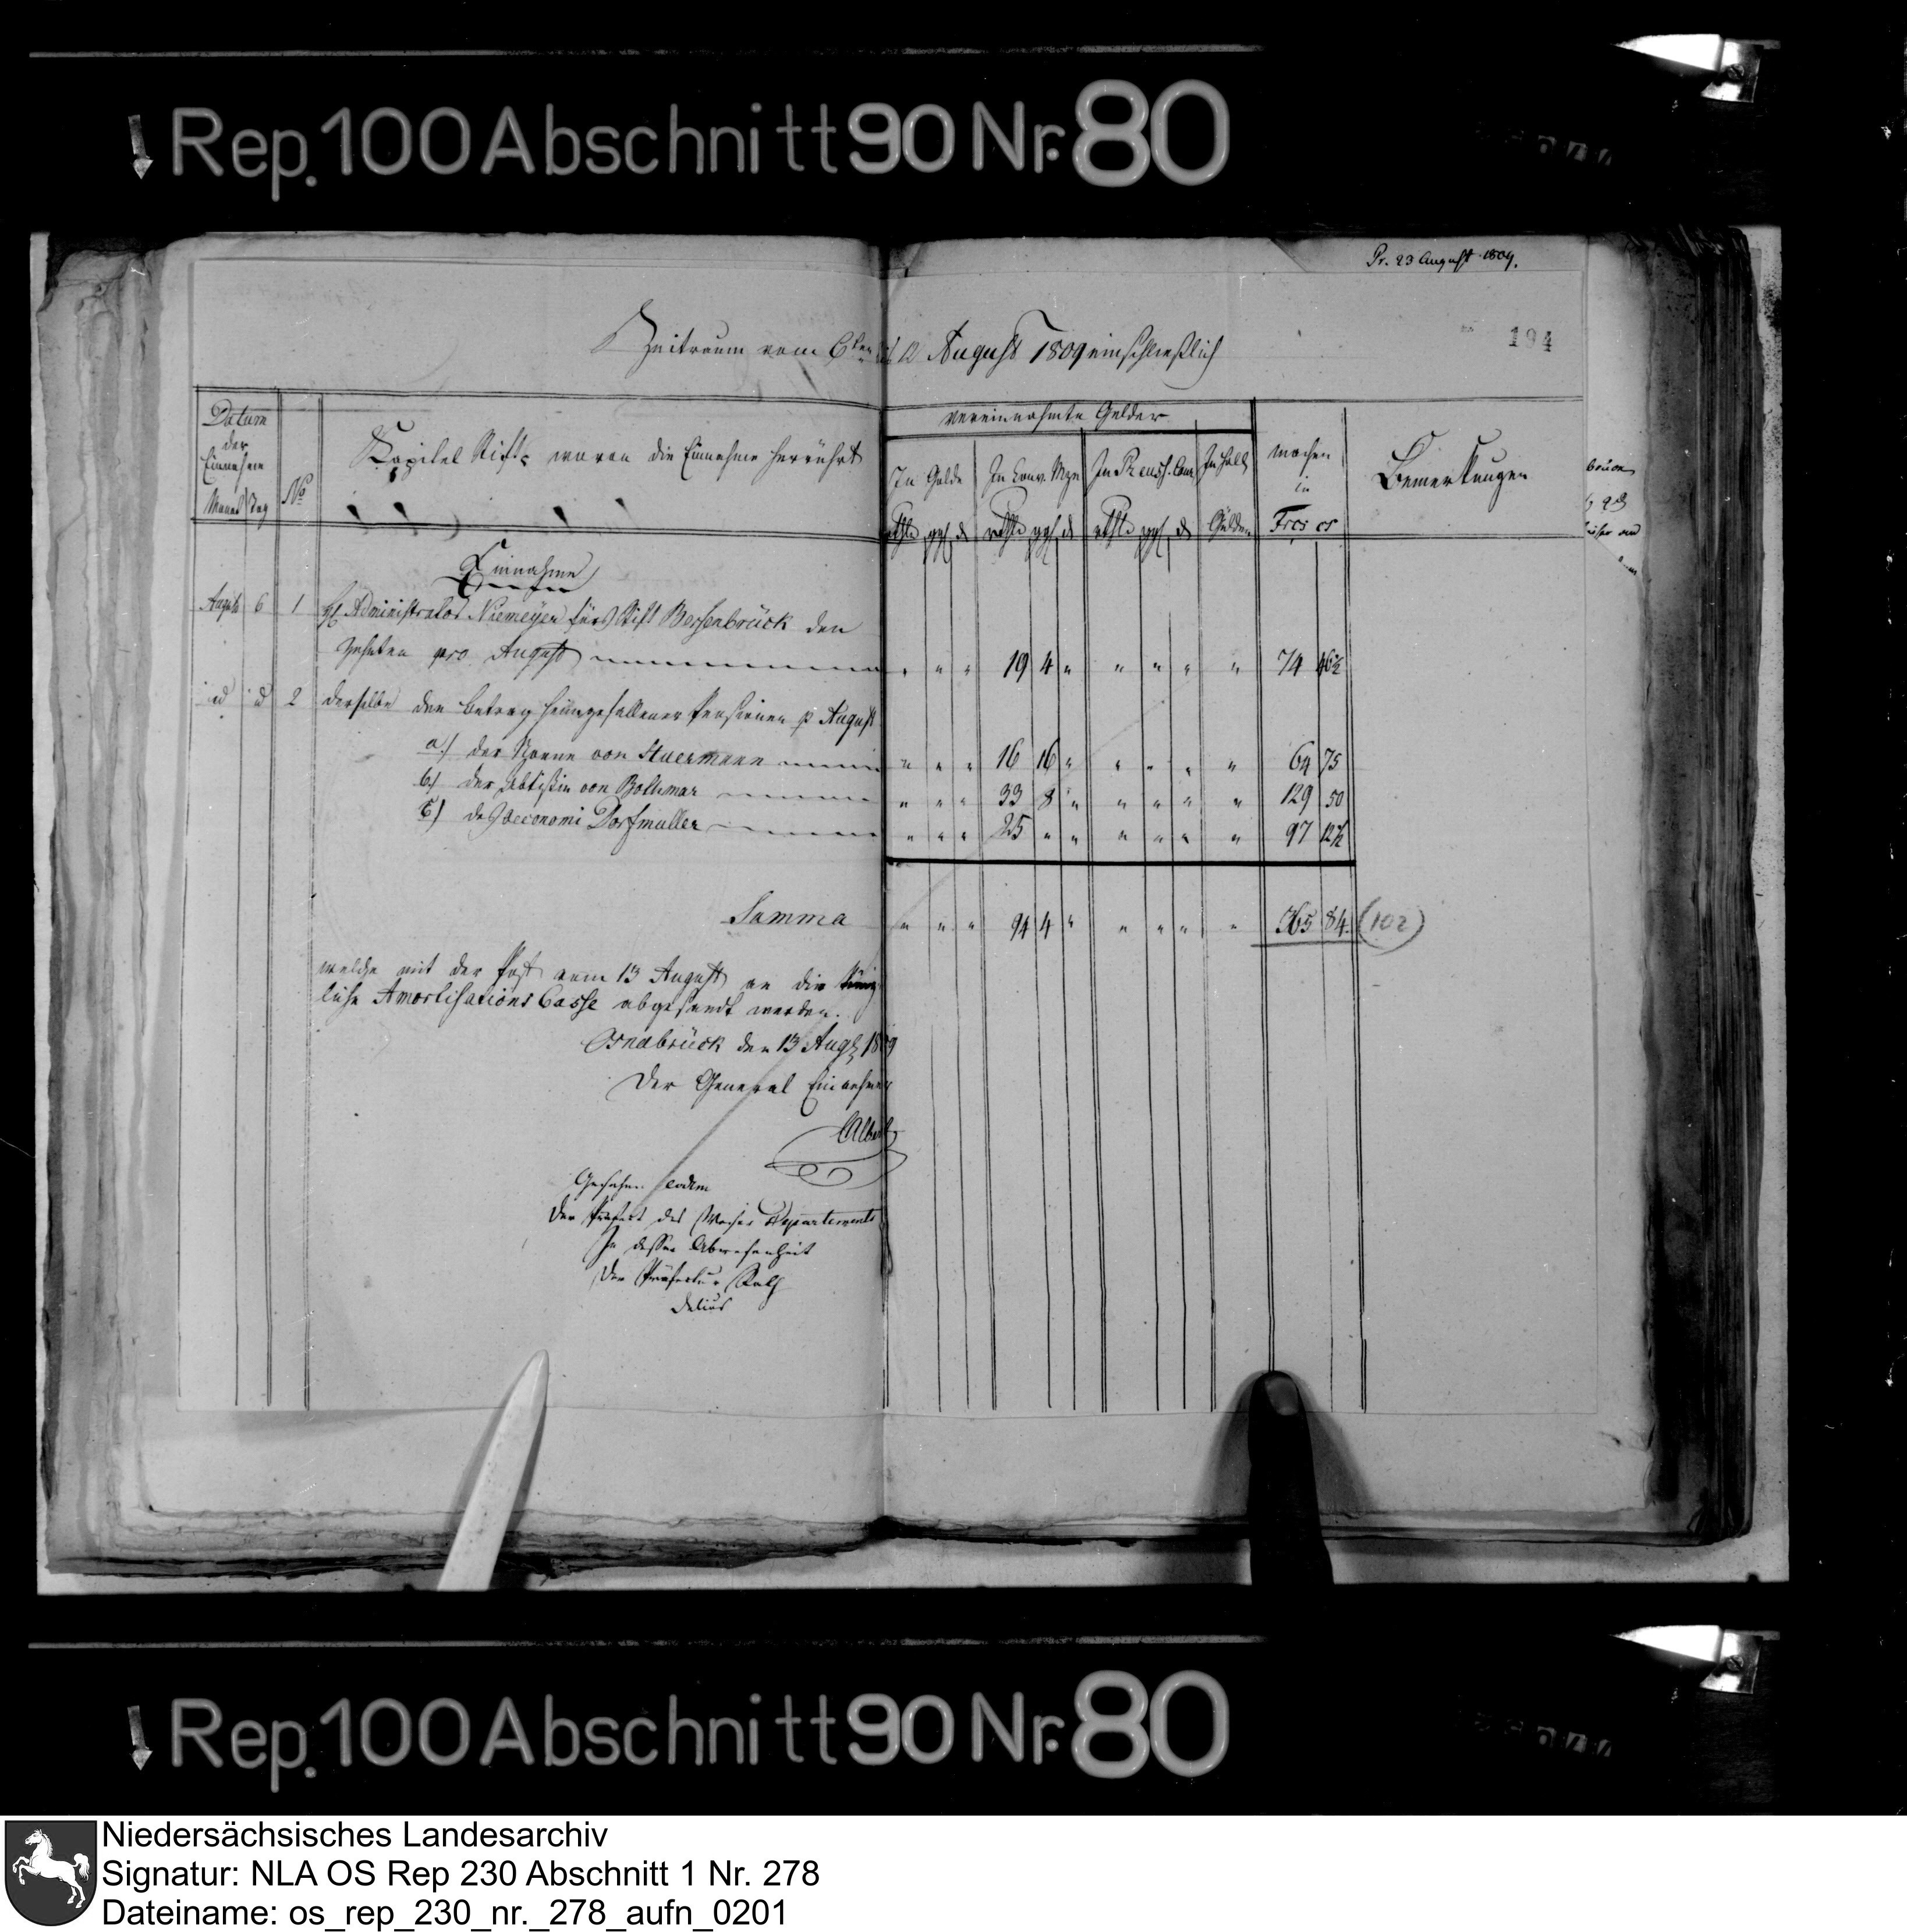 Rep. 100 Abschnitt 90 Nr. 80
Pr. 23 August 1809.
194
Zeitraum vom 6ten bis 12 August 1809 einschließlich
Datum der Einnahme
Monat Tag
No
Kapitel Stift woraus die Einnahme herrührt
Vereinnahmte Gelder
In Golde
In Conv. Mze
In Preuss. Cour
In Holl
Gülden
machen in
Frcs cs
Bemerkungen
rthlr ggl d rthlr ggl d rthlr ggl d
Einnahme
August 6 1 Administrator Niemeyer fürs Stift Bersenbrück den
Zehnten pro August " " " 19 4 " " " " " 74 46½
id id 2 derselbe den Betrag heimgefallener Pensionen p August
a.) der Nonne von Stuermann " " " 16 16 " " " " " 64 75
b.) der Abtißin von Bothmar " " " 33 8 " " " " " 129 50
c) des Oeconomi Dorfmuller " " " 25 " " " " " " 97 12½
Summa " " " 94 4 " " " " " 365 84. (102)
welche mit der Post vom 13 August an die König
liche Amortisations Casse abgesandt werden.
Osnabrück den 13 Augst 1809
Der General Einnehmer
Gesehen eodem
Der Präfect des Weser Departements
In dessen Abwesenheit
Der Präfectur Rath
Delius
Rep. 100 Abschnitt 90 Nr. 80
Niedersächsisches Landesarchiv
Signatur: NLA OS Rep 230 Abschnitt 1 Nr. 278
Dateiname: os_rep_230_nr._278_aufn_0201